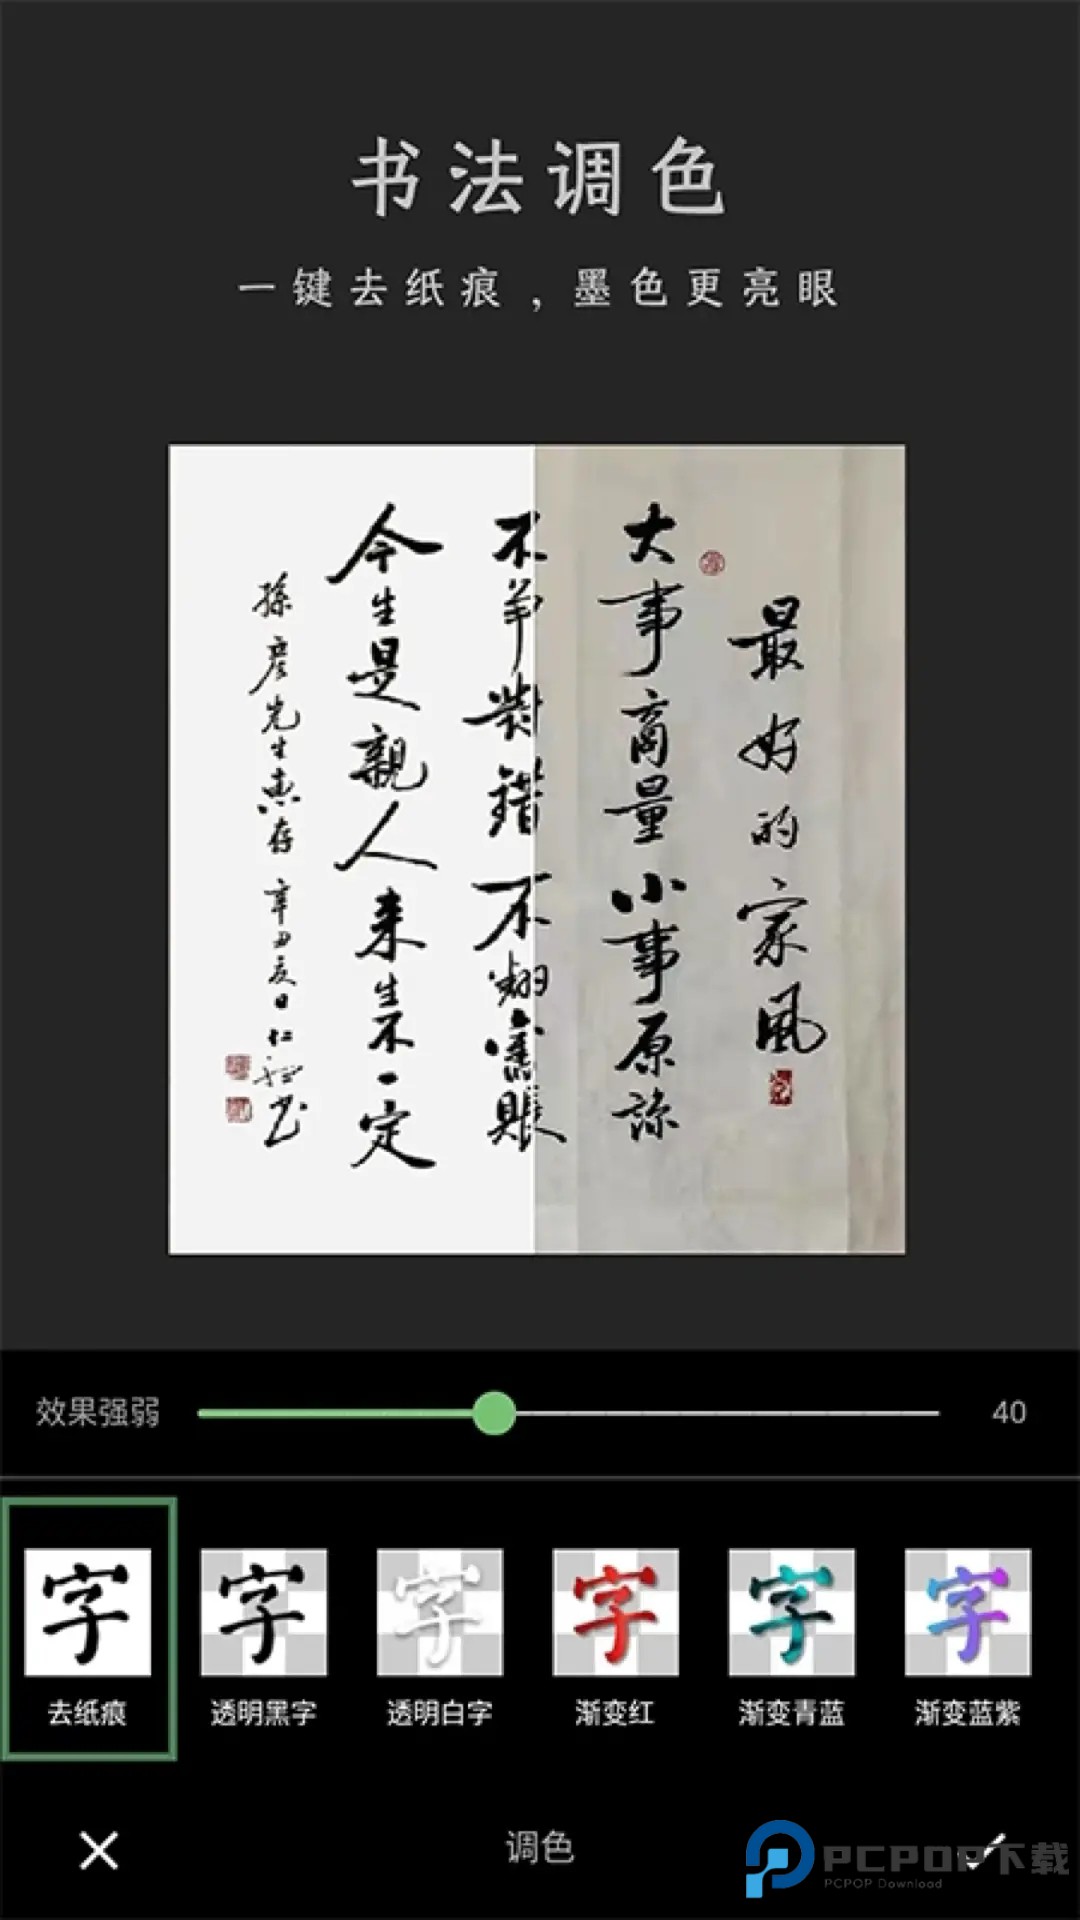 书法调色
一键去纸痕，墨色更亮眼
最好的家風
大事商量小事原諒
不爭對錯不翻舊賬
今生是親人来生不一定
孫彦先生惠存 辛丑
效果强弱
40
字 字 字 字 字 字
去纸痕 透明黑字 透明白字 渐变红 渐变青蓝 渐变蓝紫
调色
PCPOP下载
PCPOP Download